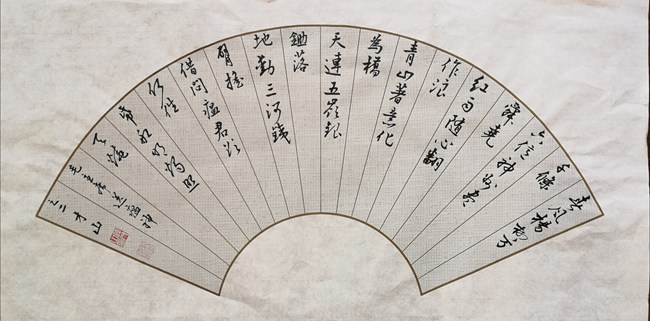 春风楊柳万
千條
六億神州盡
舜堯
红雨随心翻
作浪
青山著意化
為橋
天連五嶺銀
鋤落
地動三河鐵
臂摇
借問瘟君欲
何往
紙船明燭照
天燒
毛主席送瘟神
之二 才山